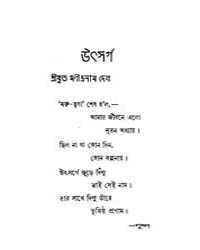 উৎসর্গ
শ্রীযুত মণীন্দ্রনাথ দেব
'মরু-তৃষা' শেষ হ'ল,—
আমার জীবনে এলো
নূতন অধ্যায়।
ছিল না যা কোন দিন,
কোন কল্পনায়।
উৎসর্গে জুড়ে দিনু
তাই সেই নাম।
তার সাথে দিনু তাঁরে
ভূমিষ্ঠ প্রণাম।